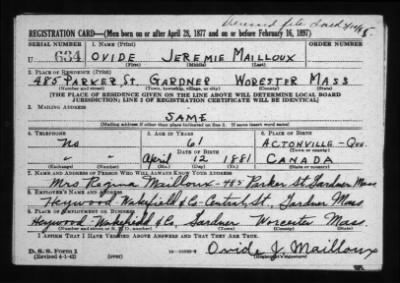 REGISTRATION CARD—(Men born on or after April 28, 1877 and on or before February 16, 1897)
SERIAL NUMBER 1. NAME (Print) ORDER NUMBER
U 634 OVIDE JEREMIE MAILLOUX
(First) (Middle) (Last)
2. PLACE OF RESIDENCE (Print)
485 PARKER St. GARDNER WORCESTER MASS
(Number and street) (Town, township, village, or city) (County) (State)
[THE PLACE OF RESIDENCE GIVEN ON THE LINE ABOVE WILL DETERMINE LOCAL BOARD
JURISDICTION; LINE 2 OF REGISTRATION CERTIFICATE WILL BE IDENTICAL]
3. MAILING ADDRESS
SAME
(Mailing address if other than place indicated on line 2. If same insert word same)
4. TELEPHONE 5. AGE IN YEARS 6. PLACE OF BIRTH
no 61 ACTONVILLE - Que.
DATE OF BIRTH (Town or county)
" " April 12 1881 CANADA
(Exchange) (Number) (Mo.) (Day) (Yr.) (State or country)
7. NAME AND ADDRESS OF PERSON WHO WILL ALWAYS KNOW YOUR ADDRESS
Mrs Regina Mailloux - 485 Parker St. Gardner Mass
8. EMPLOYER'S NAME AND ADDRESS
Heywood Wakefield & Co - Central St., Gardner Mass
9. PLACE OF EMPLOYMENT OR BUSINESS
Heywood Wakefield & Co. Gardner Worcester Mass
(Number and street or R. F. D. number) (Town) (County) (State)
I AFFIRM THAT I HAVE VERIFIED ABOVE ANSWERS AND THAT THEY ARE TRUE.
D. S. S. Form 1
(Revised 4-1-42) (over)
Ovide J. Mailloux
(Registrant's signature)